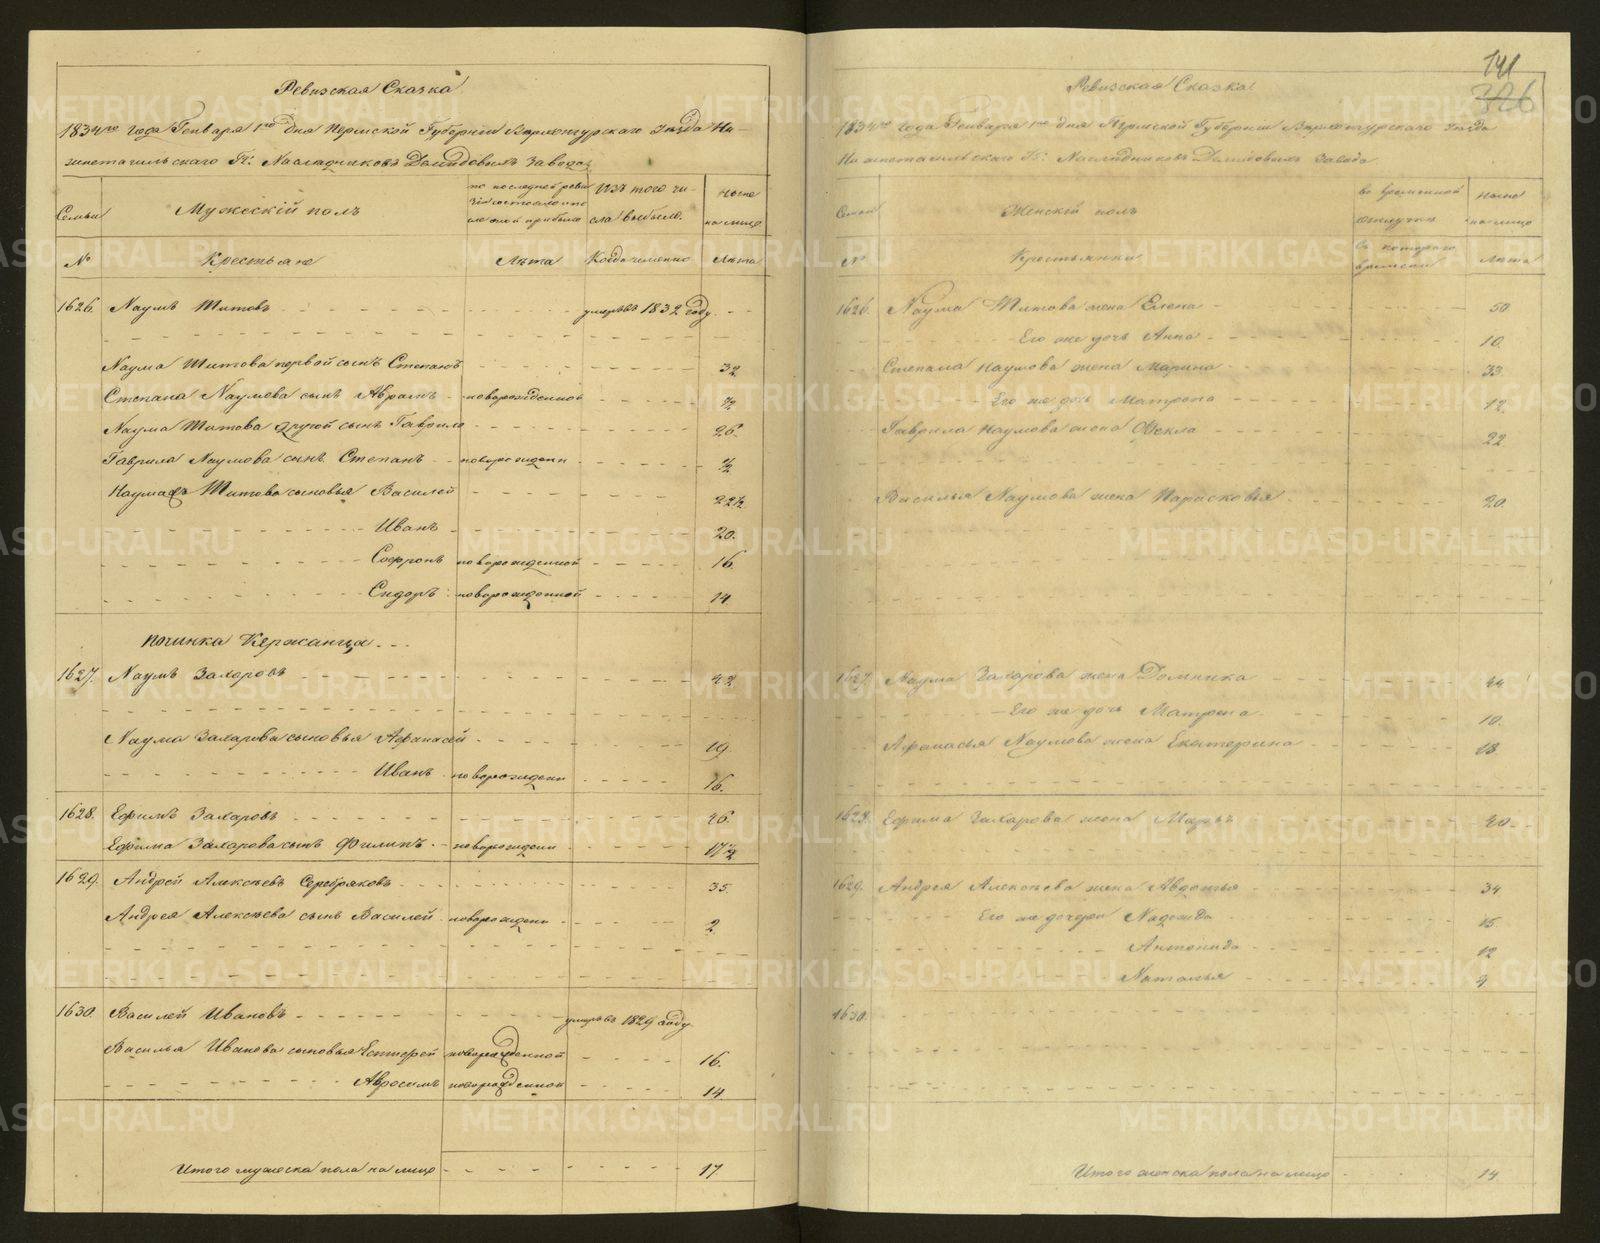 Ревизская Сказка
1834го года Генваря 1го дня Пермской Губернiи Верхотурскаго Уѣзда Ни-
жнетагильскаго Гг. Наслѣдниковъ Демидовыхъ Завода
Семьи
Мужескiй полъ
по последней ревизiи состояло и после оной прибыло
Изъ того чи-
сла выбыло
Ныне
на лицо
№
Крестьяне
Лѣта
Когда именно
Лѣта
1626. Наумъ Титовъ умеръ въ 1832 году
Наума Титова первой сынъ Степанъ 32
Степана Наумова сынъ Аврамъ новорожденной ½
Наума Титова другой сынъ Гаврило 26.
Гаврила Наумова сынъ Степанъ новорожденн ½
Наума Титова сыновья Василей 22½
Иванъ 20.
Софронъ новорожденной 16.
Сидоръ новорожденной 14
починка Кержанца
1627. Наумъ Захаровъ 42
Наума Захарова сыновья Афанасей 19.
Иванъ новорожденн 16.
1628. Ефимъ Захаровъ 46
Ефима Захарова сынъ Филипъ новорожденн 17½
1629. Андрей Алексѣевъ Серебряковъ 35
Андрея Алексѣева сынъ Василей новорожденн 2.
1630. Василей Ивановъ умеръ въ 1829 году
Василья Иванова сыновья Естифей новорожденной 16.
Авросимъ новорожденной 14
Итого мужеска пола на лицо 17
141
326
Ревизская Сказка
1834го года Генваря 1го дня Пермской Губернiи Верхотурскаго Уѣзда
Нижнетагильскаго Гг. Наслѣдниковъ Демидовыхъ Завода
Семьи
Женскiй полъ
во временной
отлучке
Ныне
на лицо
№
Крестьянки
съ котораго
времени
Лѣта
1626. Наума Титова жена Елена 50
Его же дочь Анна 10.
Степана Наумова жена Марина 33
Его же дочь Матрена 12.
Гаврила Наумова жена Фекла 22
Василья Наумова жена Парасковья 20.
1627 Наума Захарова жена Домника 44
Его же дочь Матрена 10.
Афанасья Наумова жена Екатерина 18
1628. Ефима Захарова жена Марья 40
1629. Андрея Алексѣева жена Авдотья 34
Его же дочери Надежда 15.
Антонида 12
Наталья 4.
1630.
Итого женска пола на лицо 14